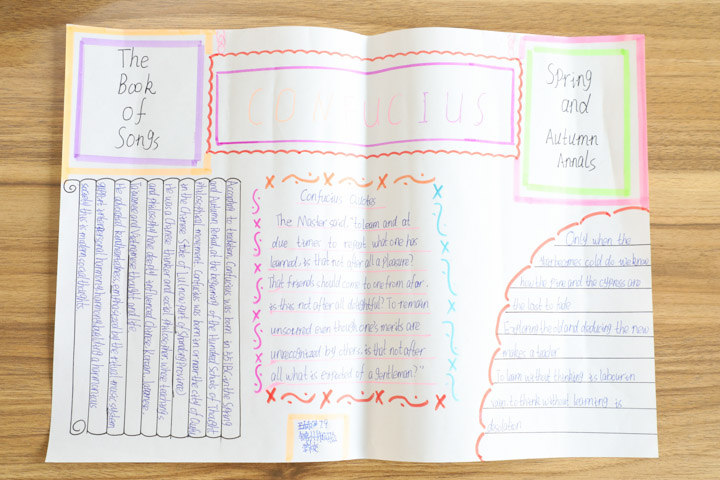 The
Book
of
Songs
CONFUCIUS
Spring
and
Autumn
Annals
According to tradition, Confucius was born in 551 BC in the Spring
and Autumn Period, at the beginning of the Hundred Schools of Thought
philosophical movement. Confucius was born in or near the city of Qufu,
in the Chinese State of Lu (now part of Shandong Province)
He was a Chinese thinker and social philosopher, whose teachings
and philosophy have deeply influenced Chinese, Korean, Japanese,
Taiwanese and Vietnamese thought and life.
He advocated kindheartedness, emphasized by the ritual music system
support interpersonal harmony, harmony, building a harmonious
society, this is modern social thoughts
Confucius Quotes
The Master said, "to learn and at
due times to repeat what one has
learned, is that not after all a pleasure?
That friends should come to one from afar,
is this not after all delightful? To remain
unsoured even though one's merits are
unrecognized by others, is that not after
all what is expected of a gentleman?"
Only when the
year becomes cold do we know
how the Pine and the cypress are
the last to fade
Exploring the old and deducing the new
makes a teacher
To learn without thinking is labour in
vain to think without learning is
desolation